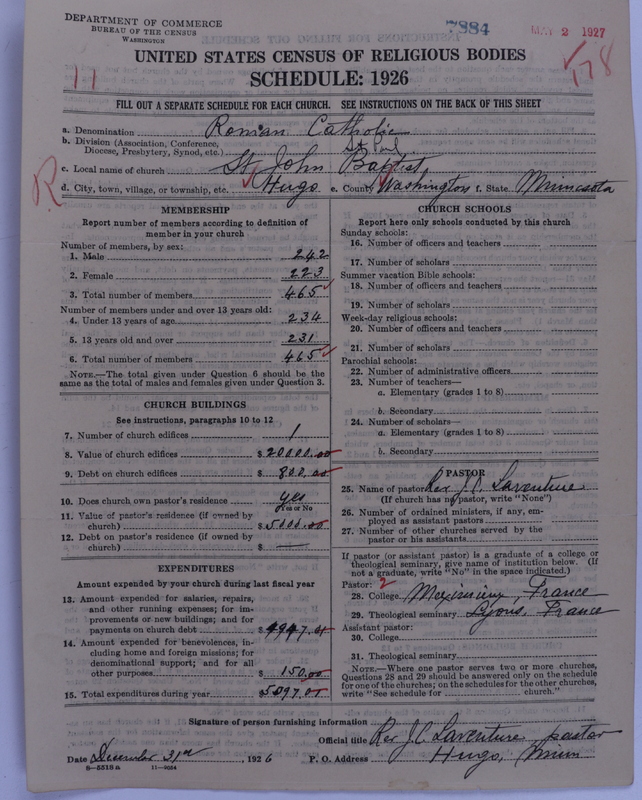 DEPARTMENT OF COMMERCE
BUREAU OF THE CENSUS
WASHINGTON
7884
MAY 2 1927
178
11
UNITED STATES CENSUS OF RELIGIOUS BODIES
SCHEDULE: 1926
FILL OUT A SEPARATE SCHEDULE FOR EACH CHURCH. SEE INSTRUCTIONS ON THE BACK OF THIS SHEET
a. Denomination Roman Catholic
b. Division (Association, Conference, Diocese, Presbytery, Synod, etc.) St. Paul
c. Local name of church St. John Baptist
R
d. City, town, village, or township, etc. Hugo e. County Washington f. State Minnesota
MEMBERSHIP
Report number of members according to definition of
member in your church
Number of members, by sex:
1. Male 242
2. Female 223
3. Total number of members 465
Number of members under and over 13 years old:
4. Under 13 years of age 234
5. 13 years old and over 231
6. Total number of members 465
NOTE.—The total given under Question 6 should be the
same as the total of males and females given under Question 3.
CHURCH BUILDINGS
See instructions, paragraphs 10 to 12
7. Number of church edifices 1
8. Value of church edifices $20000.00
9. Debt on church edifices $ 800.00
10. Does church own pastor's residence yes
Yes or No
11. Value of pastor's residence (if owned by
church) $5000.00
12. Debt on pastor's residence (if owned by
church) $ —
EXPENDITURES
Amount expended by your church during last fiscal year
13. Amount expended for salaries, repairs,
and other running expenses; for im-
provements or new buildings; and for
payments on church debt $4947.01
14. Amount expended for benevolences, in-
cluding home and foreign missions; for
denominational support; and for all
other purposes $ 150.00
15. Total expenditures during year $5097.01
CHURCH SCHOOLS
Report here only schools conducted by this church
Sunday schools:
16. Number of officers and teachers
17. Number of scholars
Summer vacation Bible schools:
18. Number of officers and teachers
19. Number of scholars
Week-day religious schools:
20. Number of officers and teachers
21. Number of scholars
Parochial schools:
22. Number of administrative officers
23. Number of teachers—
a. Elementary (grades 1 to 8)
b. Secondary
24. Number of scholars—
a. Elementary (grades 1 to 8)
b. Secondary
PASTOR
25. Name of pastor Rev J.C. Laventure
(If church has no pastor, write "None")
26. Number of ordained ministers, if any, em-
ployed as assistant pastors
27. Number of other churches served by the
pastor or his assistants
If pastor (or assistant pastor) is a graduate of a college or
theological seminary, give name of institution below. (If
not a graduate, write "No" in the space indicated.)
Pastor: 2
28. College Meximieux, France
29. Theological seminary Lyons, France
Assistant pastor:
30. College
31. Theological seminary
NOTE.—Where one pastor serves two or more churches,
Questions 28 and 29 should be answered only on the schedule
for one of the churches; on the schedules for the other churches,
write "See schedule for church."
Signature of person furnishing information
Official title Rev J.C. Laventure pastor
Date December 31st, 1926 P. O. Address Hugo, Minn
8—5518 a 11—9054